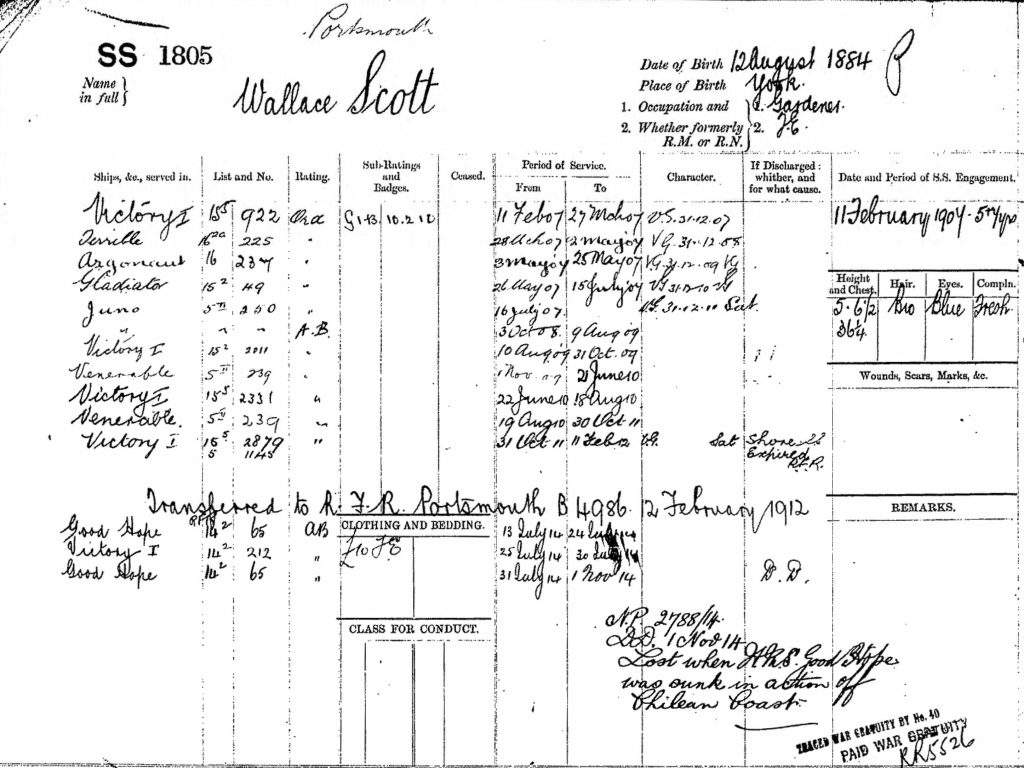 Portsmouth
SS 1805
Name in full } Wallace Scott
Date of Birth 12 August 1884
Place of Birth York.
1. Occupation and 1. Gardener.
2. Whether formerly R.M. or R.N. 2. F.E.
Ships, &c., served in. List and No. Rating. Sub-Ratings and Badges. Ceased. Period of Service. From To Character. If Discharged: whither, and for what cause. Date and Period of S.S. Engagement.
Victory I 15 5 922 Ord G 1·43 10.2.10 11 Feb 07 27 Mch 07 V.G. 31.12.07 11 February 1907 - 5 yrs
Terrible 16 2a 225 " 28 Mch 07 2 May 07 VG. 31.12.08
Argonaut 16 237 " 3 May 07 25 May 07 VG 31.12.09 VG
Gladiator 15 2 49 " 26 May 07 15 July 07 VG 31.12.10
Juno 5 II 250 " 16 July 07 V.G. 31.12.10 Sat.
" " " A.B. 3 Oct 08. 9 Aug 09
Victory I 15 2 2011 " 10 Aug 09 31 Oct. 09
Venerable 5 II 239 " 1 Nov. 09 21 June 10
Victory I 15 5 2331 " 22 June 10 18 Aug 10
Venerable. 5 II 239 " 19 Aug 10 30 Oct 11
Victory I 15 5 2879 " 31 Oct 11 11 Feb 12 V.G. Sat Shore SS
5 1145 Expired R.F.R.
Height and Chest. Hair. Eyes. Compln.
5·6 1/2 Bro Blue Fresh
36 1/4
Wounds, Scars, Marks, &c.
Transferred to R.F.R. Portsmouth B 4986. 12 February 1912
REMARKS.
Good Hope 14 2 65 AB 13 July 14 24 July 14
CLOTHING AND BEDDING.
Victory I 14 2 212 " £10 F E 25 July 14 30 July 14
Good Hope 14 2 65 " 31 July 14 1 Nov 14 D.D.
CLASS FOR CONDUCT.
N.P. 2788/14.
D.D. 1 Nov 14
Lost when H.M.S. Good Hope
was sunk in action off
Chilean Coast.
TRACED WAR GRATUITY BY No. 40
PAID WAR GRATUITY
RR5526